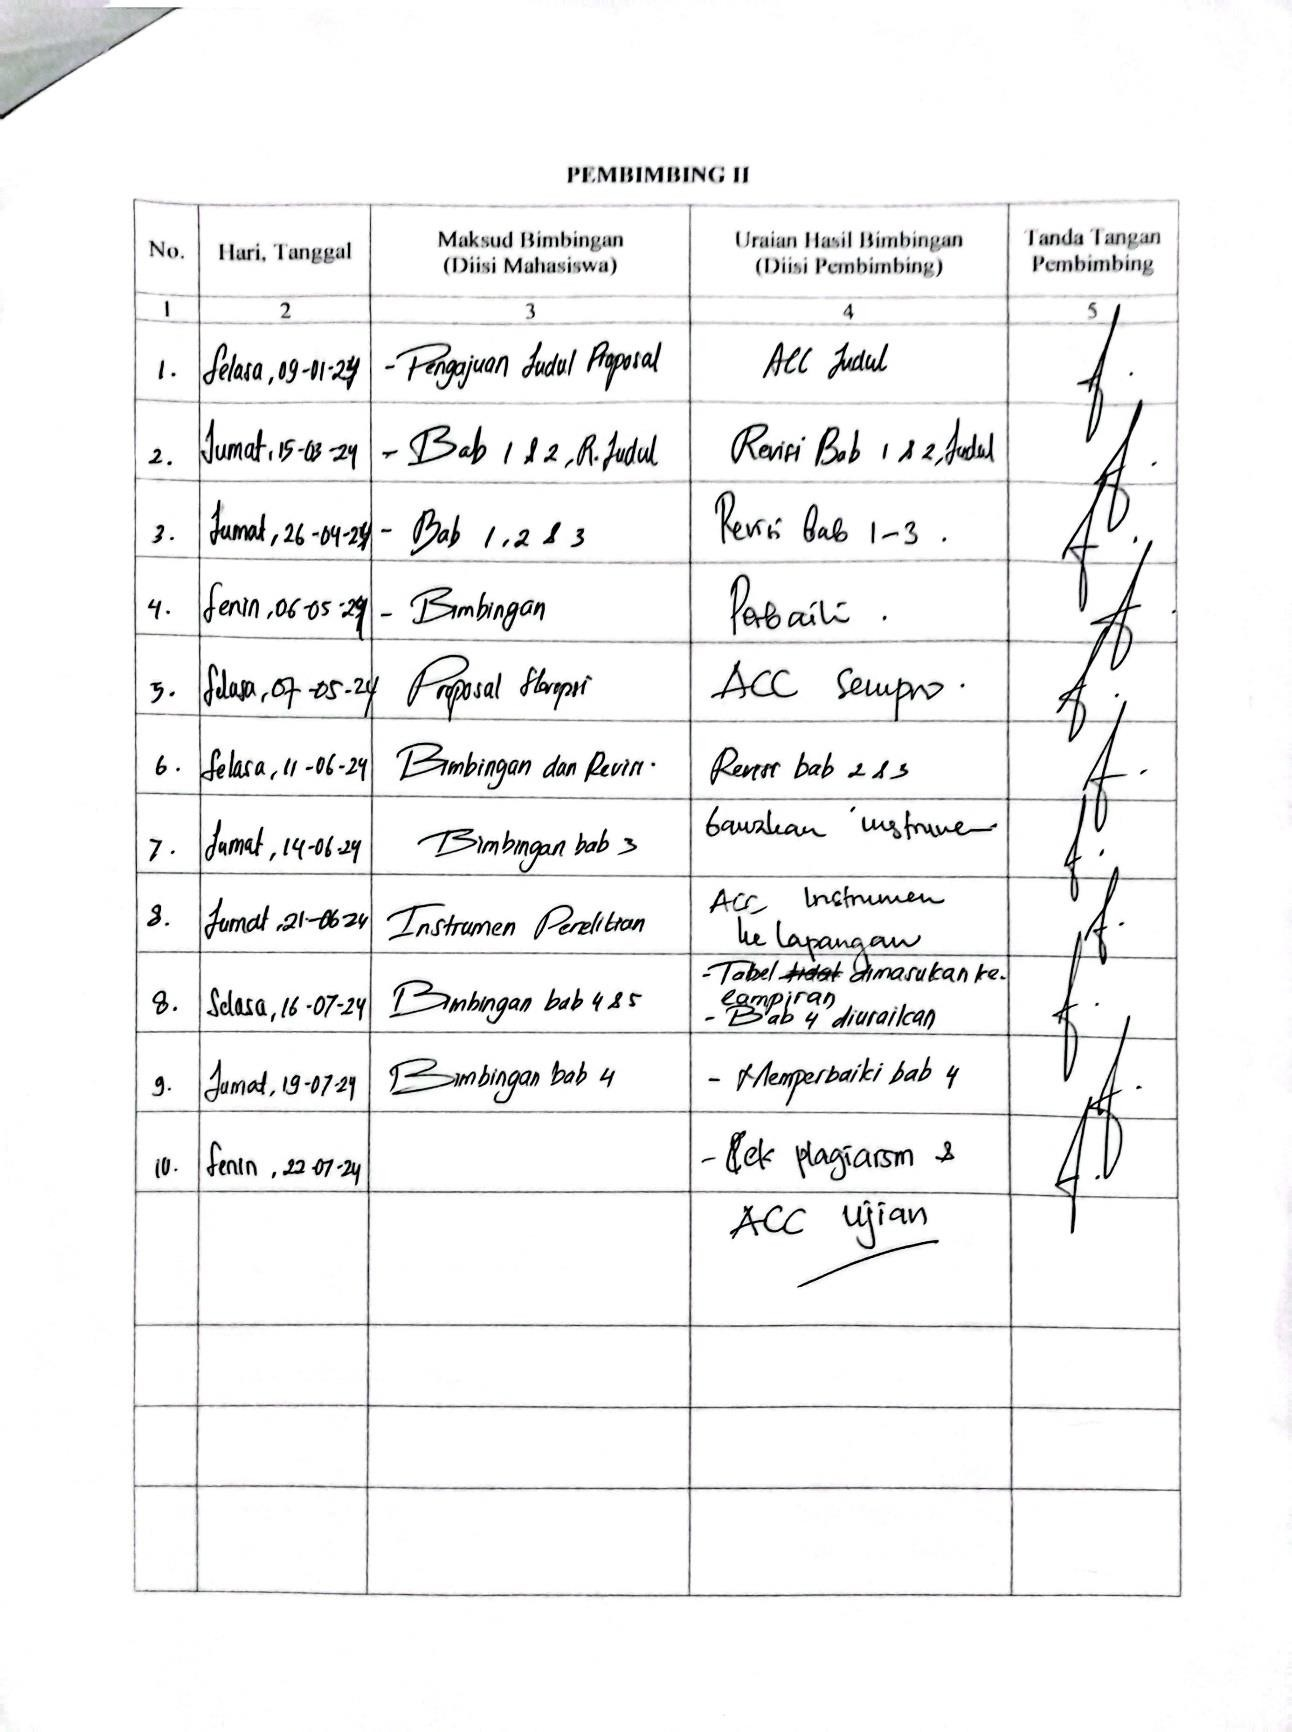 PEMBIMBING II
No. Hari, Tanggal Maksud Bimbingan (Diisi Mahasiswa) Uraian Hasil Bimbingan (Diisi Pembimbing) Tanda Tangan Pembimbing
1 2 3 4 5
1. Selasa, 09-01-24 - Pengajuan Judul Proposal ACC Judul
2. Jumat, 15-03-24 - Bab 1 & 2, R. Judul Revisi Bab 1 & 2, Judul
3. Jumat, 26-04-24 - Bab 1, 2 & 3 Revisi Bab 1-3.
4. Senin, 06-05-24 - Bimbingan Perbaiki.
5. Selasa, 07-05-24 Proposal Skripsi ACC Sempro.
6. Selasa, 11-06-24 Bimbingan dan Revisi. Revisi bab 2 & 3
7. Jumat, 14-06-24 Bimbingan bab 3 instrumen
8. Jumat, 21-06-24 Instrumen Penelitian ACC Instrumen
ke lapangan
8. Selasa, 16-07-24 Bimbingan bab 4 & 5 - Tabel tidak dimasukan ke.
Lampiran
- Bab 4 diuraikan
9. Jumat, 19-07-24 Bimbingan bab 4 - Memperbaiki bab 4
10. Senin, 22-07-24 - Cek plagiarsm &
ACC Ujian